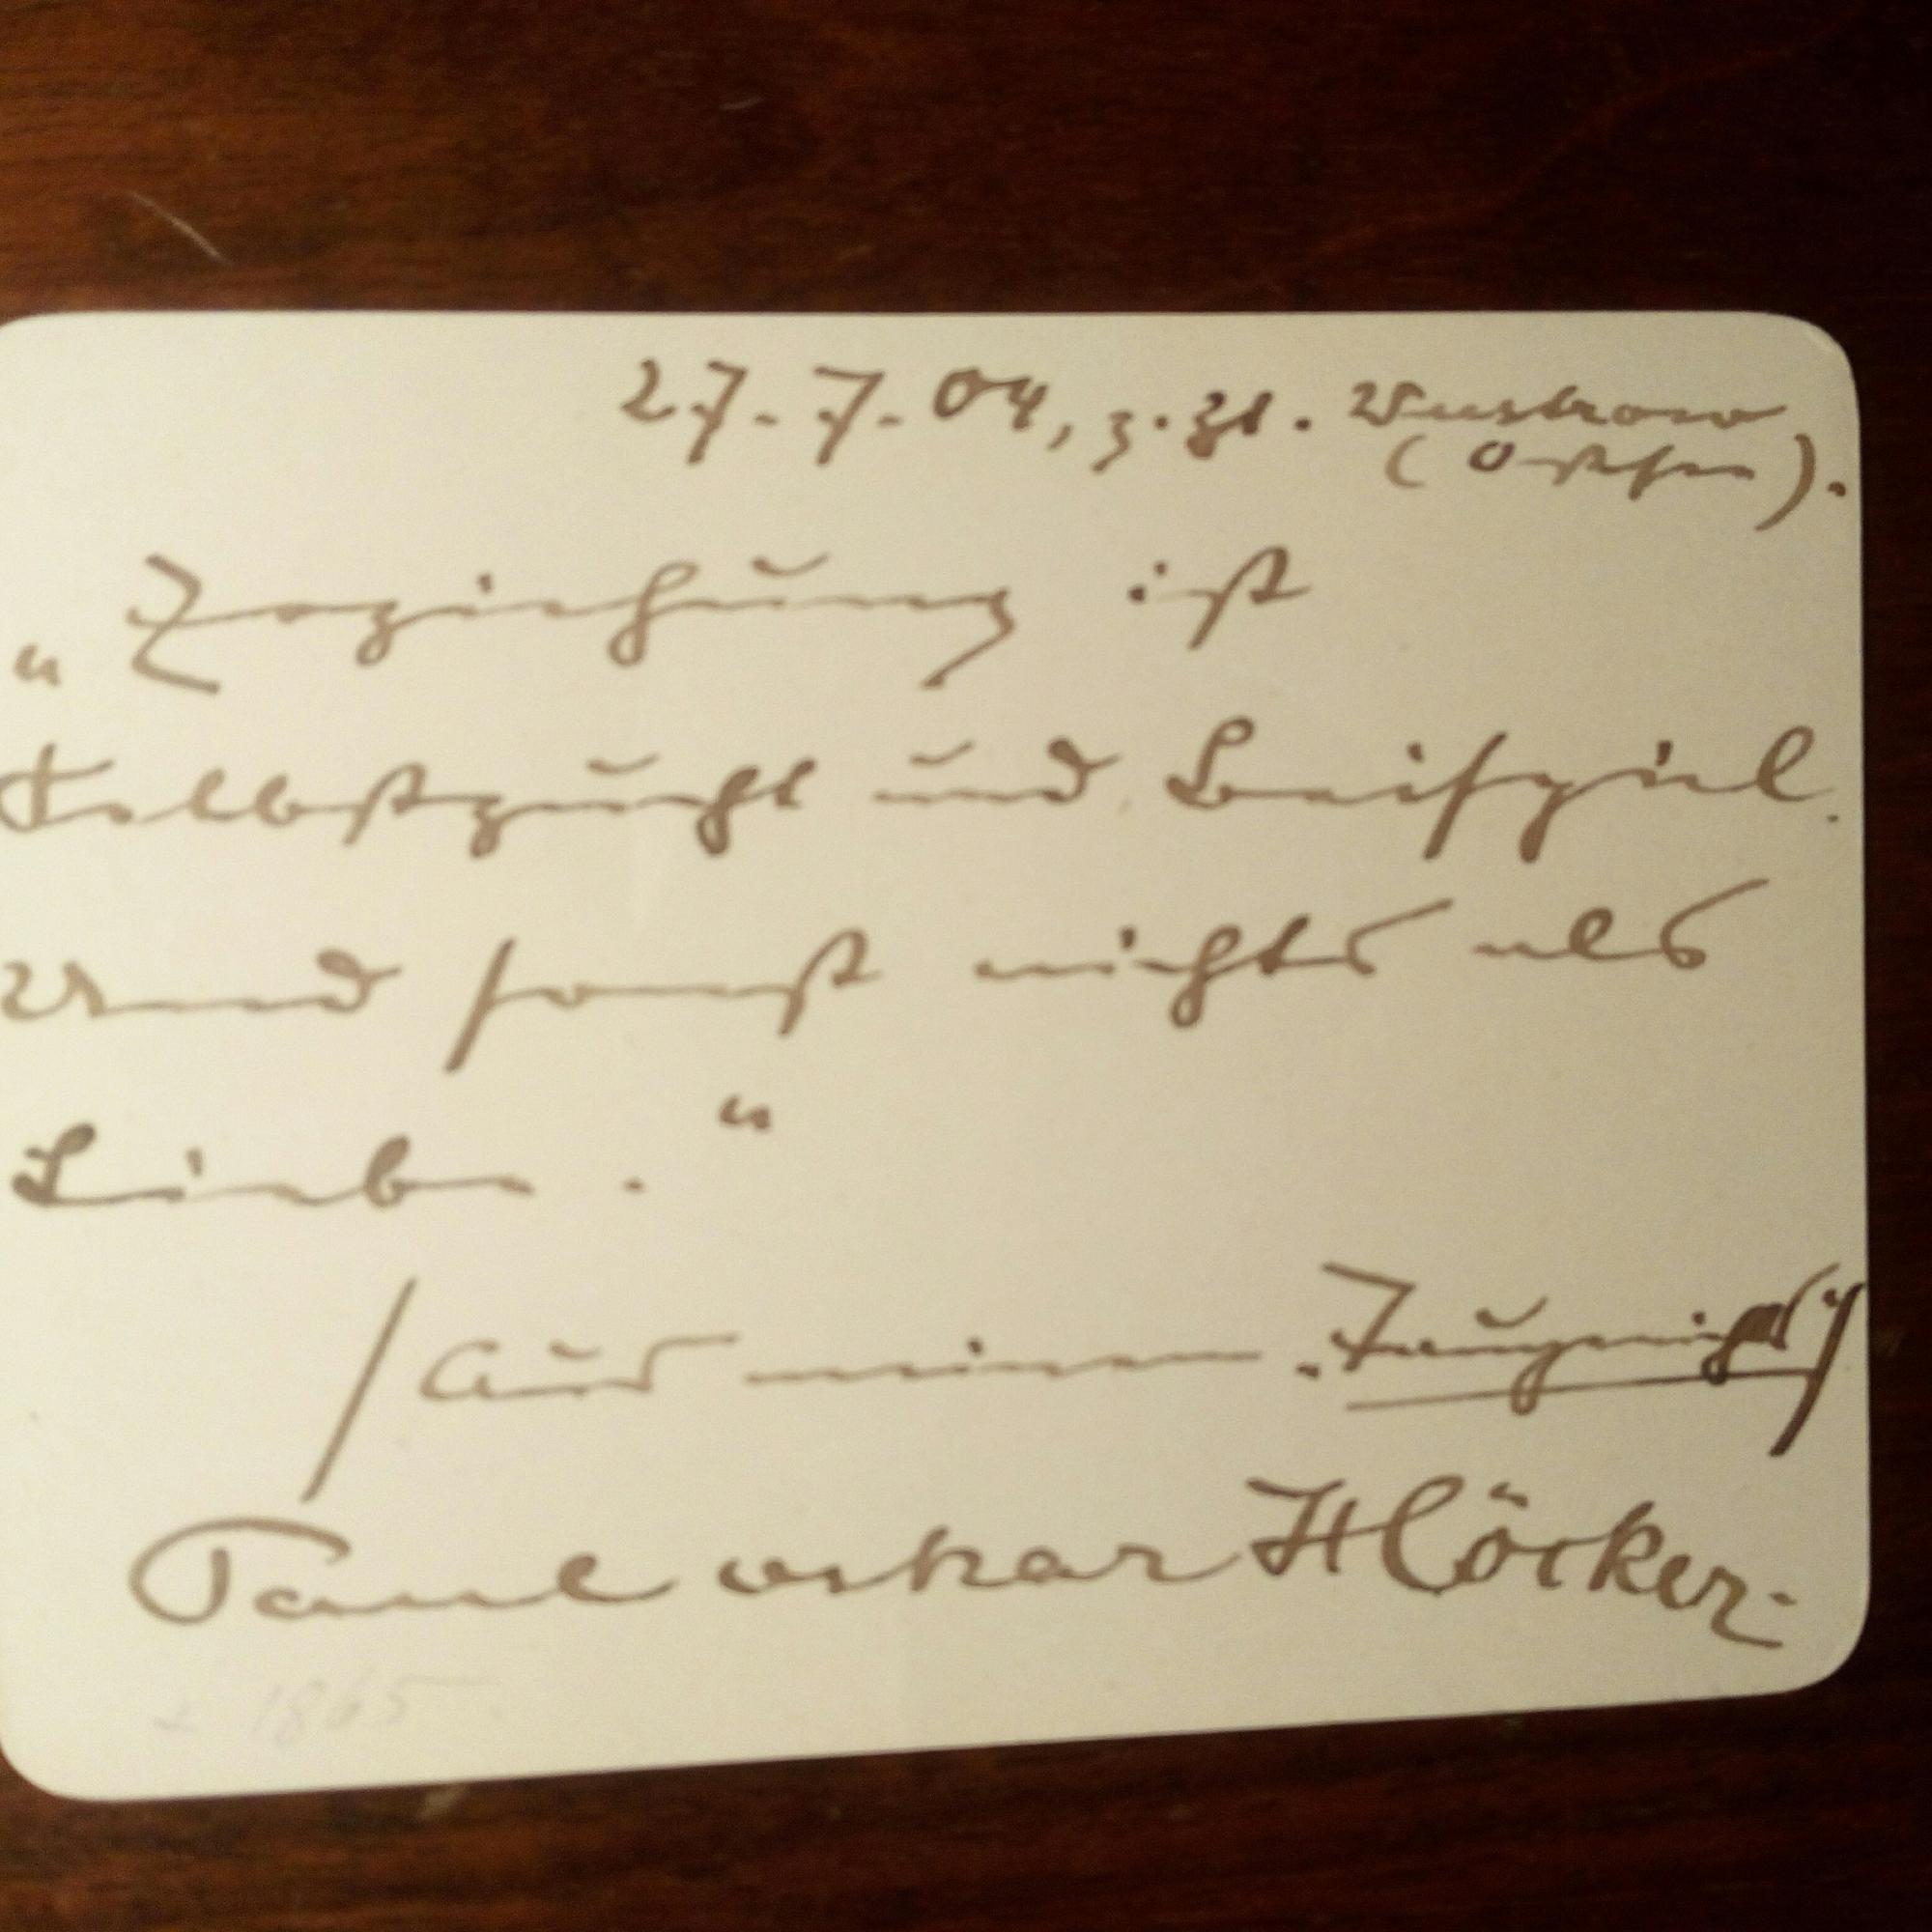 27. 7. 04, z. Zt. Wustrow
(Ostsee).
„Erziehung ist
Selbstzucht und Beispiel.
Und sonst nichts als
Liebe.“
/Aus meinem
Paul Oskar Höcker.
* 1865.